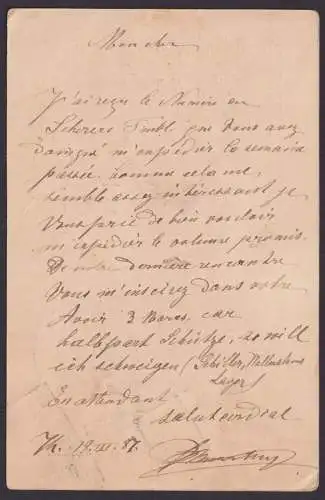 Mon cher
J'ai reçu le Numéro du
que vous avez
daigné m'expédier la semaine
passée. Comme cela me
semble assez intéressant je
Vous prie de bon vouloir
m'expédier le volume promis.
De notre dernière rencontre
Vous m'inscirez dans votre
Avoir 3 Marcs, car
halbpart Schütze, so will
ich schweigen (Schiller, Wallensteins
Lager)
En attendant
salut cordial
19. III. 87.